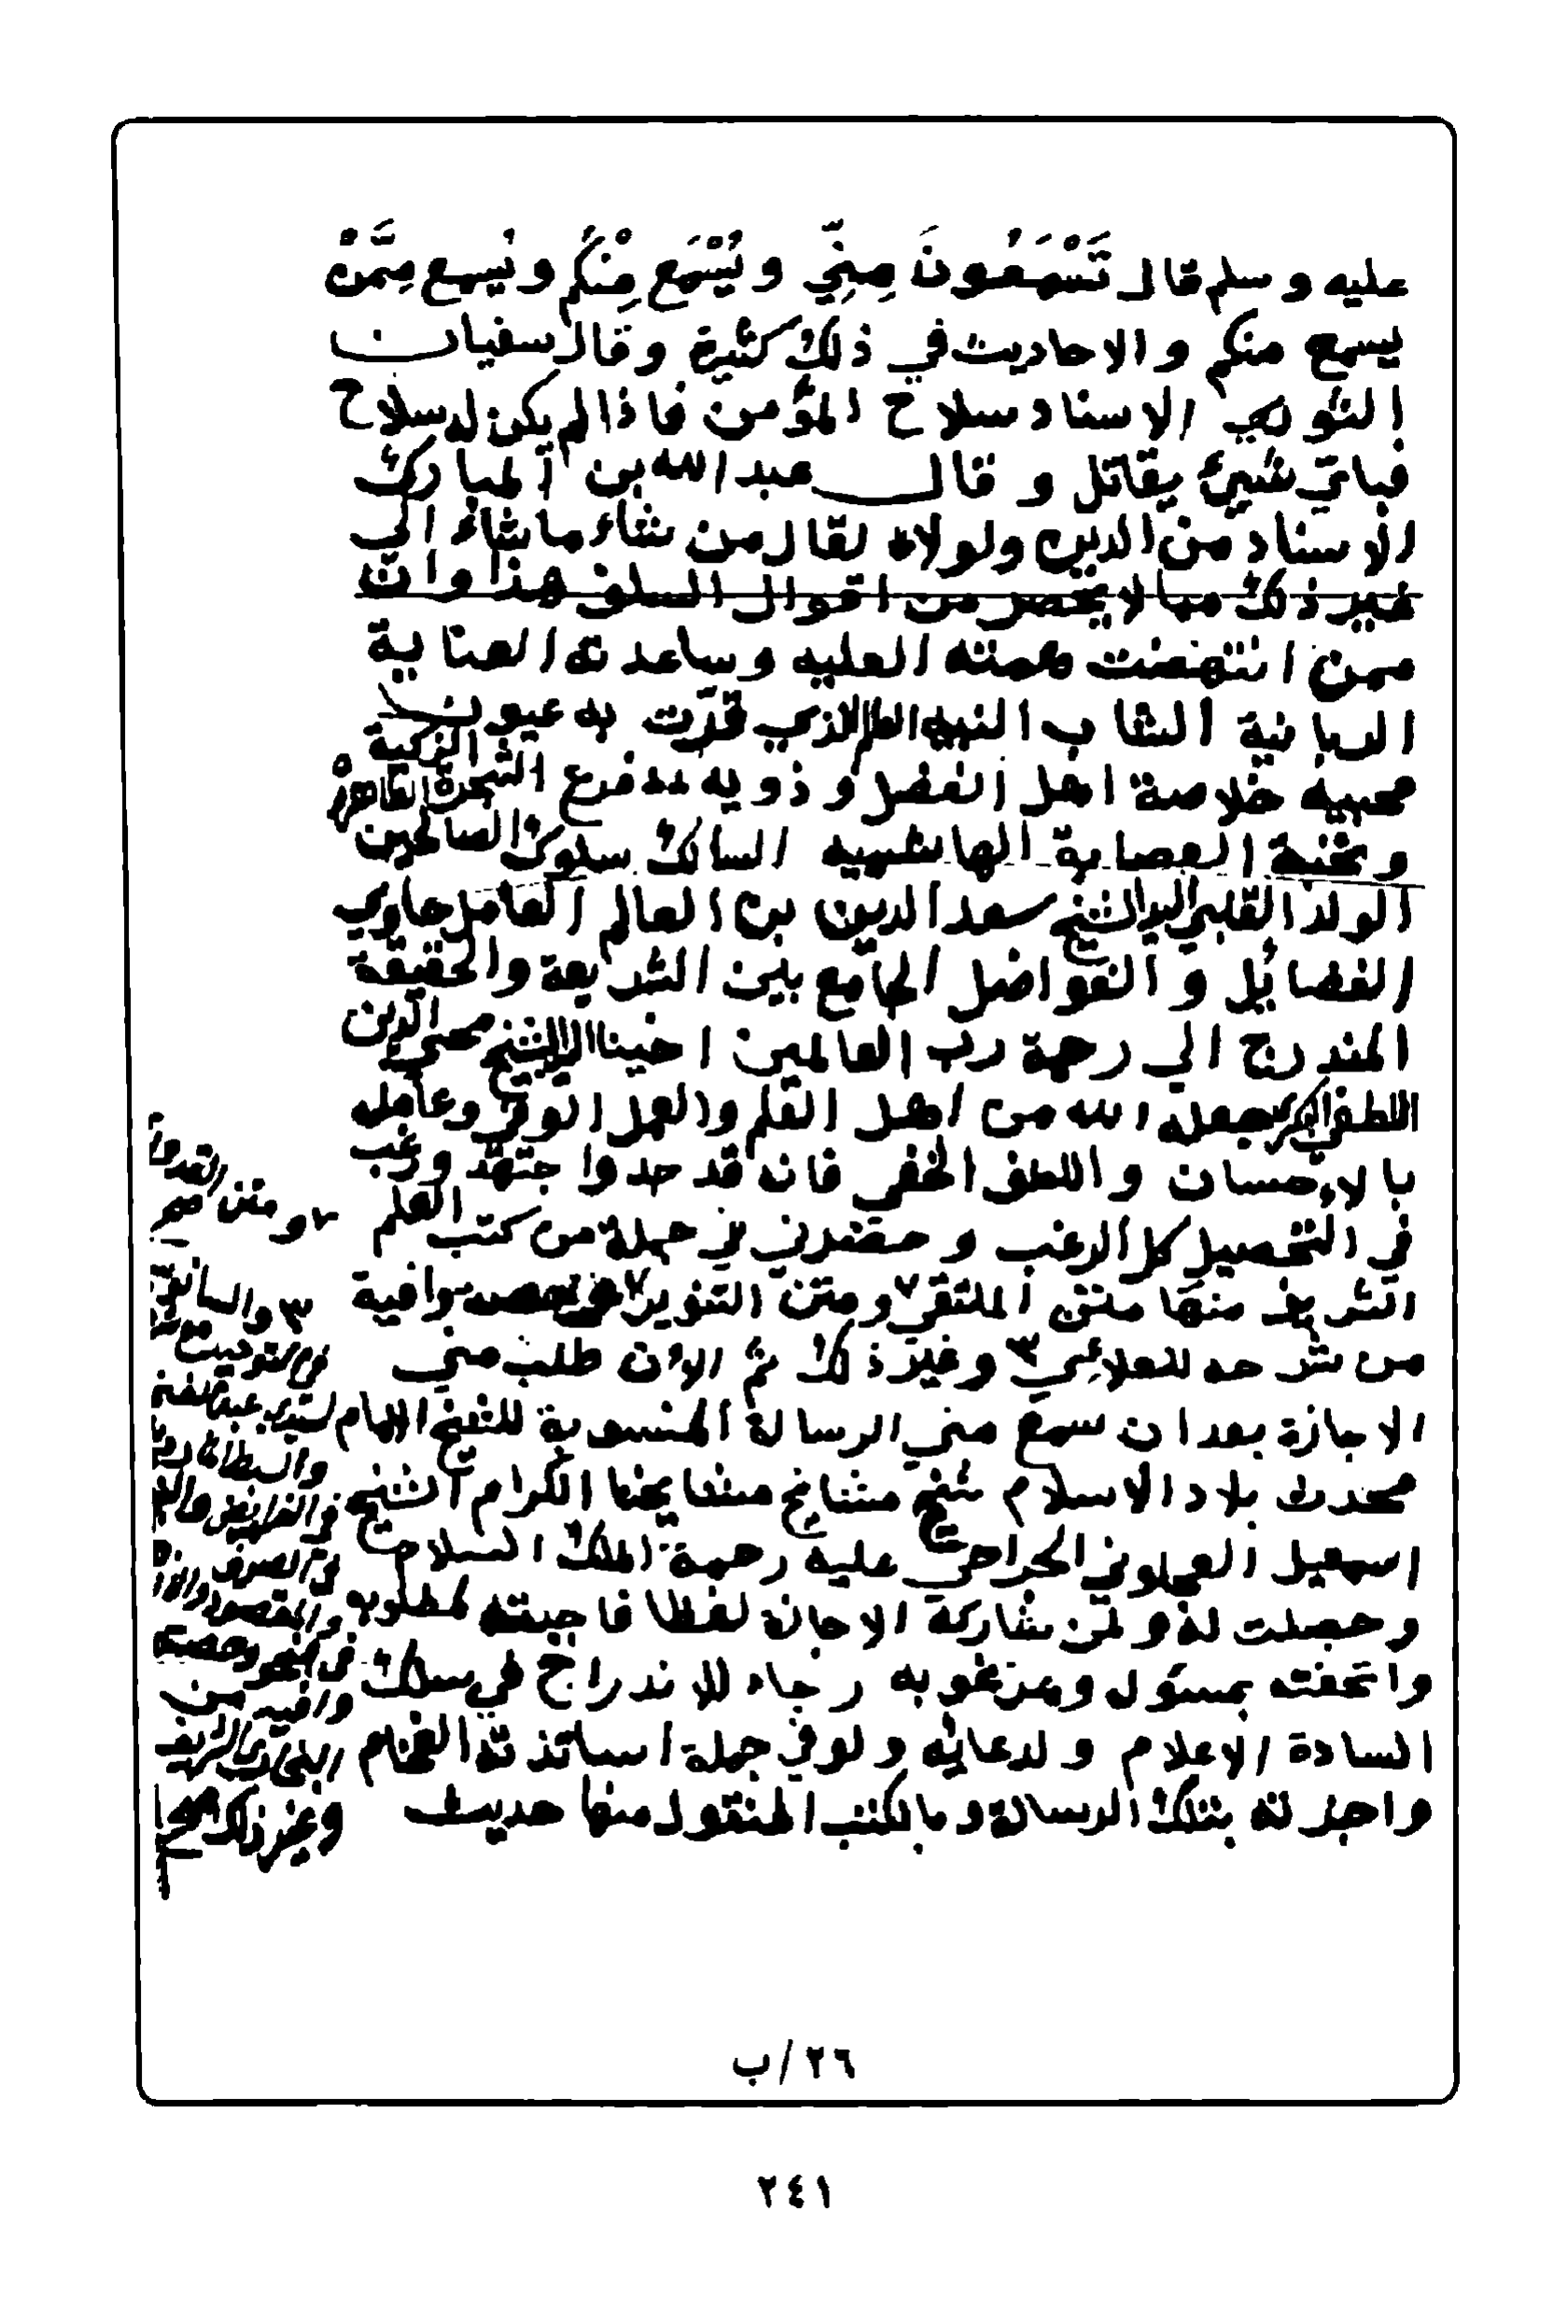 عليه وسلم قال تَسْمَعُونَ مِنِّي ويُسْمَع مِنْكُم ويُسمع مِمَّنْ
يسمع منكم والاحاديث في ذلك كثيرة وقال سفيان
الثوري الاسناد سلاح المؤمن فاذا لم يكن له سلاح
فباي شيئ يقاتل وقال عبد الله بن المبارك
الاسناد من الدين ولولاه لقال من شاء ما شاء الى
غير ذلك مما لا يحصر من اقوال السلف هذا وان
ممن انتهضت همته العليه وساعدته العناية
الربانية الشاب النبيه الذي قرّت به عيون
محبيه خلاصة اهل الفضل وذويه فرع الشجرة الزكية الطاهرة
ونخبة العصابة الهاشميه السالك سلوك الصالحين
الولد القلبي الشيخ سعد الدين بن العالم العامل حاوي
الفضائل والفواضل الجامع بين الشريعة والحقيقة
المندرج الى رحمة رب العالمين اخينا الشيخ محي الدين
اللطفي جعله الله من اهل العلم والعمل الوفي وعامله
بالاحسان واللطف الخفي فانه قد جد واجتهد ورغب
في التحصيل كل الرغب وحضرني في جملة من كتب العلم
الشريف منها متن الملتقى ٧ ومتن التنوير ٧ وحصه وافية
من شرحه للعلائي ٣ وغير ذلك ثم الان طلب مني
الاجازة بعد ان سمع مني الرسالة المنسوبة للشيخ الامام
محدث بلاد الاسلام شيخ مشايخ مشايخنا الكرام الشيخ
اسمعيل العجلوني الجراحي عليه رحمة الملك السلام
وحصلت له ولمن شاركه الاجازة لفظا فاجبته لمطلوبه
واتحفته بمسؤل ومرغوبه رجاء للاندراج في سلك
السادة الاعلام ولدعايه ولو في جملة اساتذته الفخام
واجزته بتلك الرسالة وبالكتب المنقول منها حديث
٧ ومتن القدوري
٣ والسنوسية
في التوحيد مع
في الفرايض
في الصرف
والمقصود
في النحو وحصة
وافيه من
البخاري الشريف
وغير ذلك صح
٢٦/ب
٢٤١